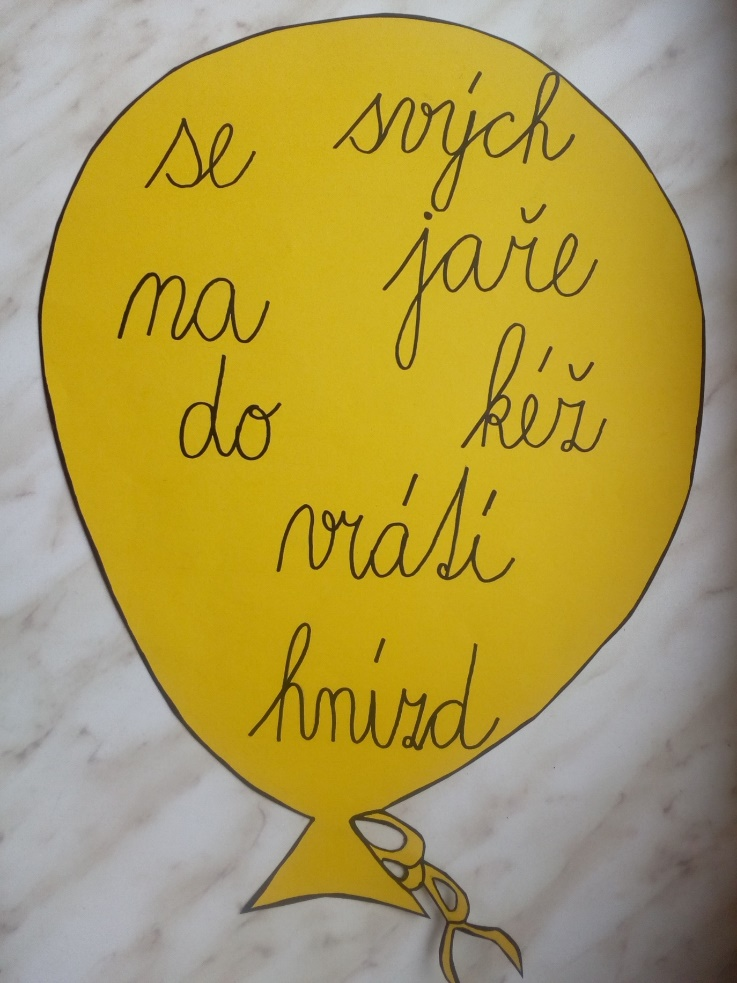 se svých
na jaře
do kéž
vrátí
hnízd